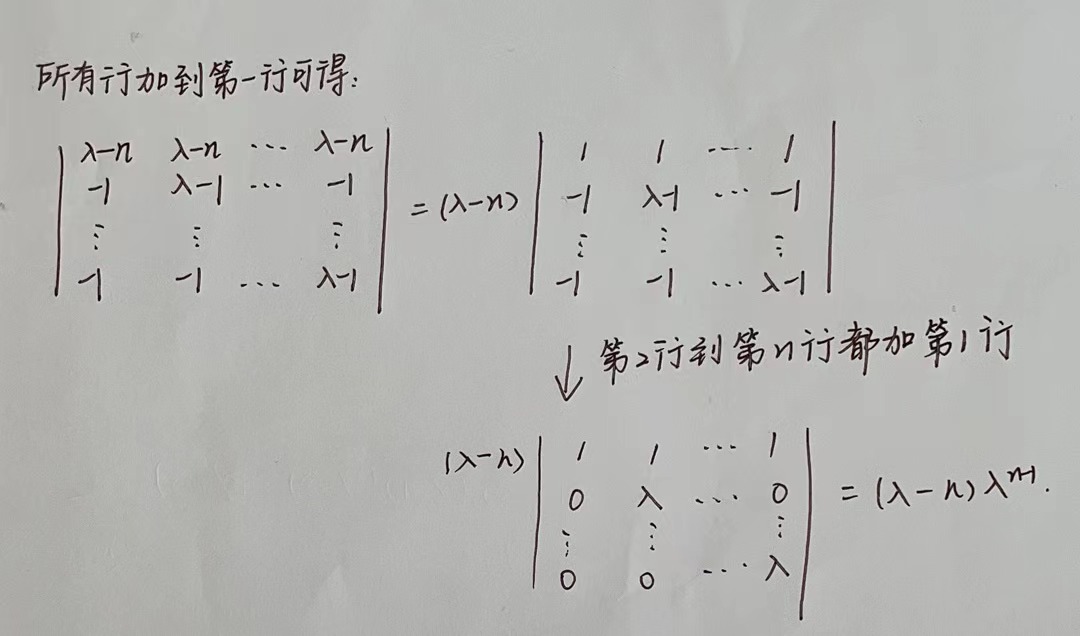 所有行加到第一行可得:
| λ-n λ-n ⋯ λ-n |
| -1 λ-1 ⋯ -1 |
| ⋮ ⋮ ⋮ |
| -1 -1 ⋯ λ-1 |
= (λ-n)
| 1 1 ⋯ 1 |
| -1 λ-1 ⋯ -1 |
| ⋮ ⋮ ⋮ |
| -1 -1 ⋯ λ-1 |
↓ 第2行到第n行都加第1行
(λ-n)
| 1 1 ⋯ 1 |
| 0 λ ⋯ 0 |
| ⋮ ⋮ ⋮ |
| 0 0 ⋯ λ |
= (λ-n)λⁿ⁻¹.